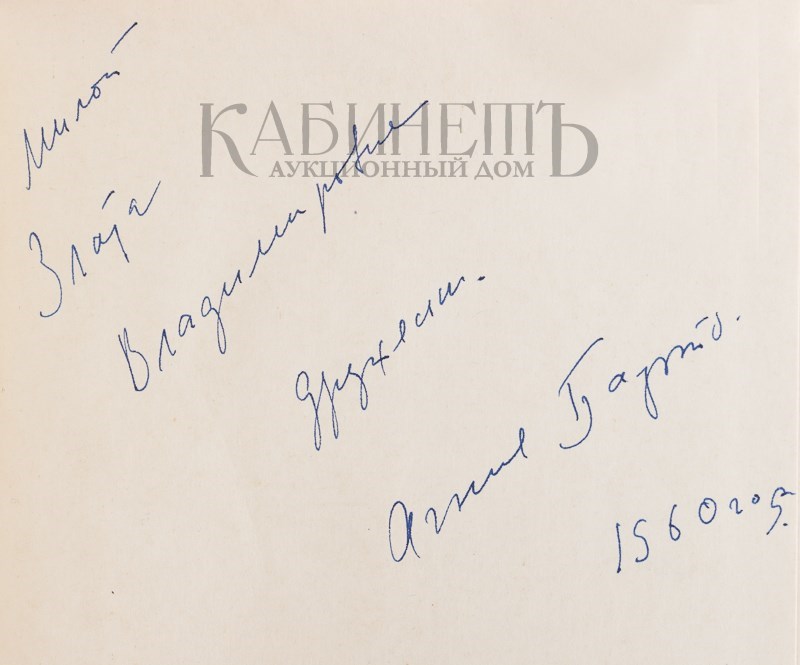 КАБИНЕТЪ
АУКЦИОННЫЙ ДОМ
Милой
Злата
Владимировне
дружески.
Агния Барто.
1960 год